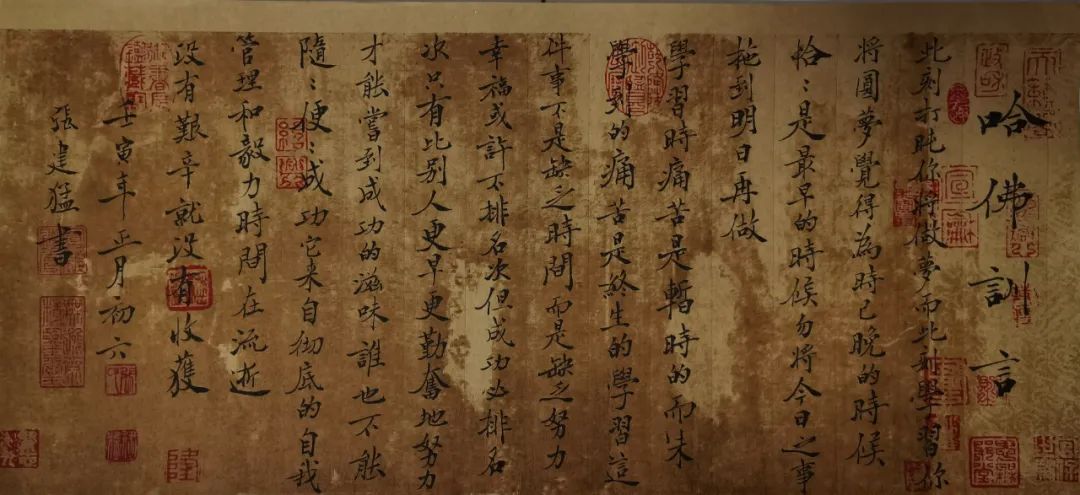 哈佛訓言
此刻打盹你將做夢而此刻學習你
將圓夢覺得為時已晚的時候
恰：是最早的時候勿將今日之事
拖到明日再做
學習時痛苦是暫時的而未
學到的痛苦是終生的學習這
件事不是缺乏時間而是缺乏努力
幸福或許不排名次但成功必排名
次只有比別人更早更勤奮地努力
才能嘗到成功的滋味誰也不能
隨：便：成功它来自彻底的自我
管理和毅力時間在流逝
没有艱辛就没有收獲
壬寅年正月初六
張建猛書